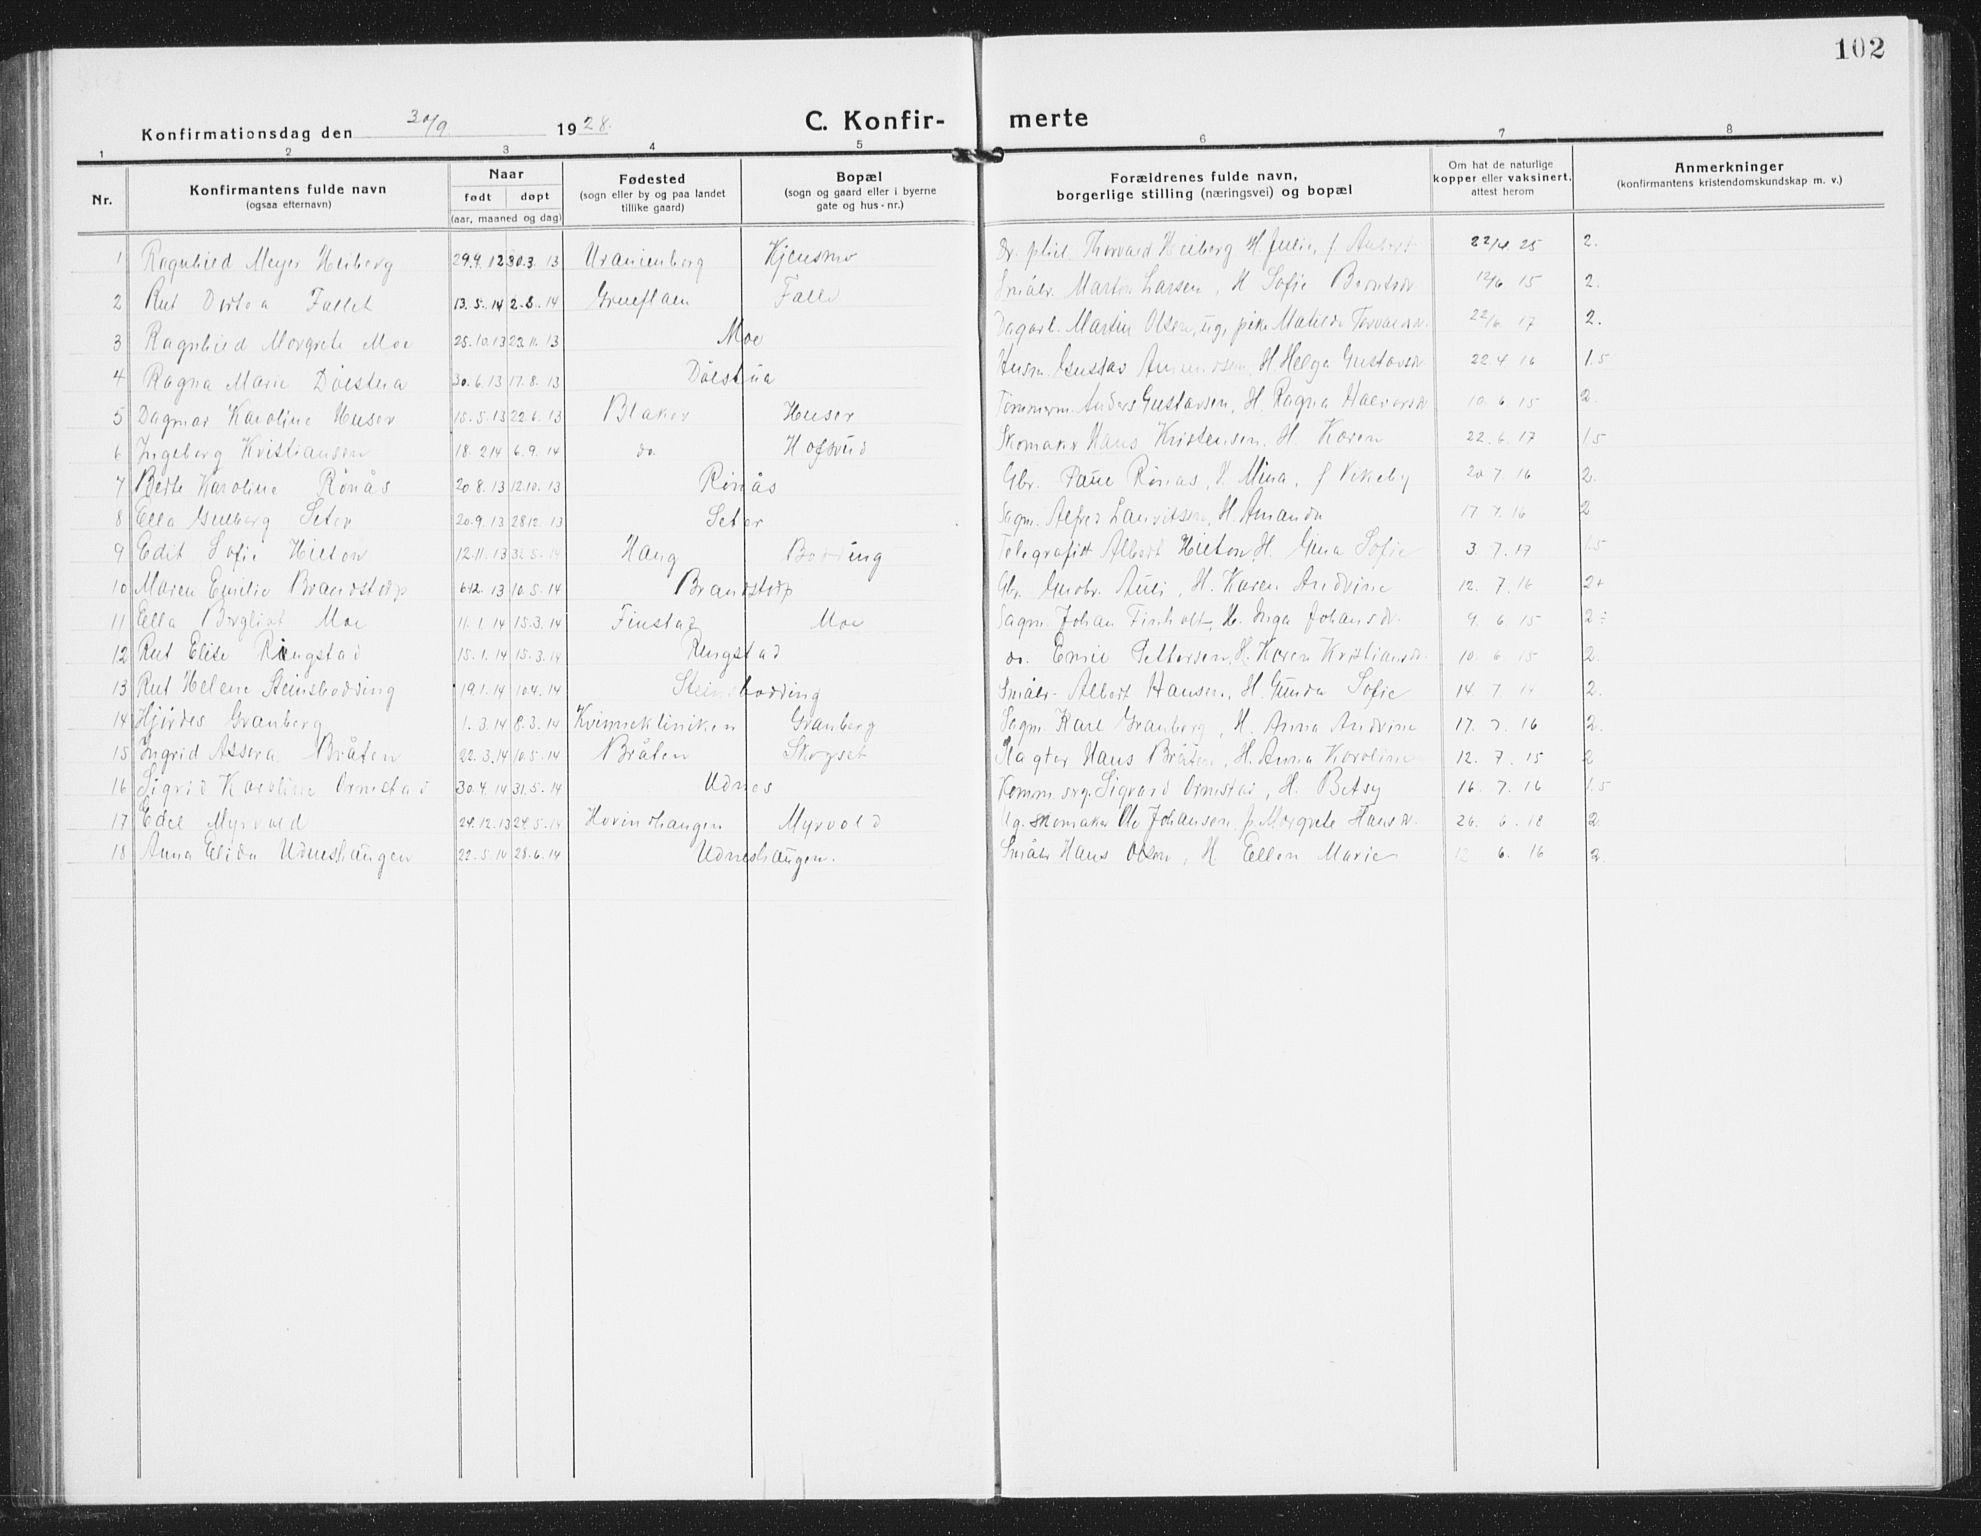 102
Konfirmationsdag den 30/9 1928.
C. Konfir- merte
1 2 3 4 5 6 7 8
Nr.
Konfirmantens fulde navn
(ogsaa efternavn)
Naar
født døpt
(aar, maaned og dag)
Fødested
(sogn eller by og paa landet
tillike gaard)
Bopæl
(sogn og gaard eller i byerne
gate og hus-nr.)
Forældrenes fulde navn,
borgerlige stilling (næringsvei) og bopæl
Om hat de naturlige
kopper eller vaksinert,
attest herom
Anmerkninger
(konfirmantens kristendomskundskap m. v.)
1 Ragnhild Meyer Heiberg 29.9.12 30.3.13 Uranienborg Kjensmo Dr. phil. Thorvald Heiberg H. Julie, f. Aubert 25 2.
2 Rut Dortea Fallet 13.5.14 2.8.14 Falle Småbr. Marton Larsen, H. Sofie Berntsdr 12/6 15 2.
3 Ragnhild Margrete Moe 25.10.13 23.11.13 Moe Dagarb. Martin Olsen, ug. pike Matilde Torvaldsdr. 22/6 17 2.
4 Ragna Marie Dølstua 30.6.13 17.8.13 Dølstua Husm. Gustav H. Helga Gustavsdr 22.4 16 1.5
5 Dagmar Karoline Huser 15.5.13 22.6.13 Blaker Huser Tømmerm. Anders Gustavsen, H. Ragna Halvorsdr 10.6.15 2.
6 Ingeborg Kristiansen 18.2.14 6.9.14 do. Hofsrud Skomaker Hans Kristensen, H. Karen 22.6.17 1.5
7 Berte Karoline Rønås 20.8.13 12.10.13 Rønås Gbr. Paul Rønås, H. Mina, f. Vikeby 20.7.16 2.
8 Ella Gunborg Seter 20.9.13 28.12.13 Seter Sagm. Alfred Lauritsen, H. Amanda 17.7.16 2
9 Edit Sofie Hilton 12.11.13 Haug Bodding Telegrafist Albert Hilton H. Gina Sofie 3.7.17 1.5
10 Maren Emilie Brandstorp 6.12.13 10.5.14 Brandstorp Gbr. Gudbr. Auli, H. Karen Andrine 12.7.16 2+
11 Ella Bergliot Moe 11.1.14 15.3.14 Finstad Moe Sagm. Johan Finholt, H. Inga Johansdr. 9.6.15 2÷
12 Rut Elise Ringstad 15.1.14 15.3.14 Ringstad do. Emil Pettersen, H. Karen Kristiansdr. 10.6.15 2.
13 Rut Helene Steinsbodding 19.1.14 10.4.14 Steinsbodding Småbr. Albert Hansen, H. Gunda Sofie 14.7.14 2.
14 Hjørdes Granberg 1.3.14 8.3.14 Kvinneklinikken Granberg Sagm. Karl Granberg, H. Anna Andrine 17.7.16 2.
15 Ingrid Assora Bråten 22.3.14 10.5.14 Bråten Skogset Slagter Hans Bråten, H. Anna Karoline 12.7.15 2
16 Sigrid Karoline Ormstad 30.4.14 31.5.14 Udnes Komm.arg. Sigvard Ormstad, H. Betsy 16.7.16 1.5
17 Edel Myrvold 24.12.13 24.5.14 Hovinshaugen Myrvold Ug. skomaker Ole Johansen, p. Margrete Hansdr. 26.6.18 2
18 Anna Elida Udneshaugen 22.5.14 28.6.14 Udneshaugen. Småbr Hans Olsen, H. Ellen Marie 12 6.16 2.